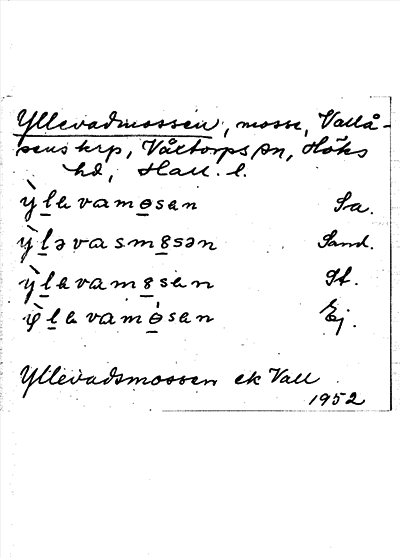 Yllevadmossen, mosse, Vallå-
sens krp, Våxtorps sn, Höks
hd, Hall. l.
ỳlevamosen Sa.
ỳləvasmosən Sand.
ỳlevamosen St.
levamosen Ej.
Yllevadsmossen ek Vall
1952